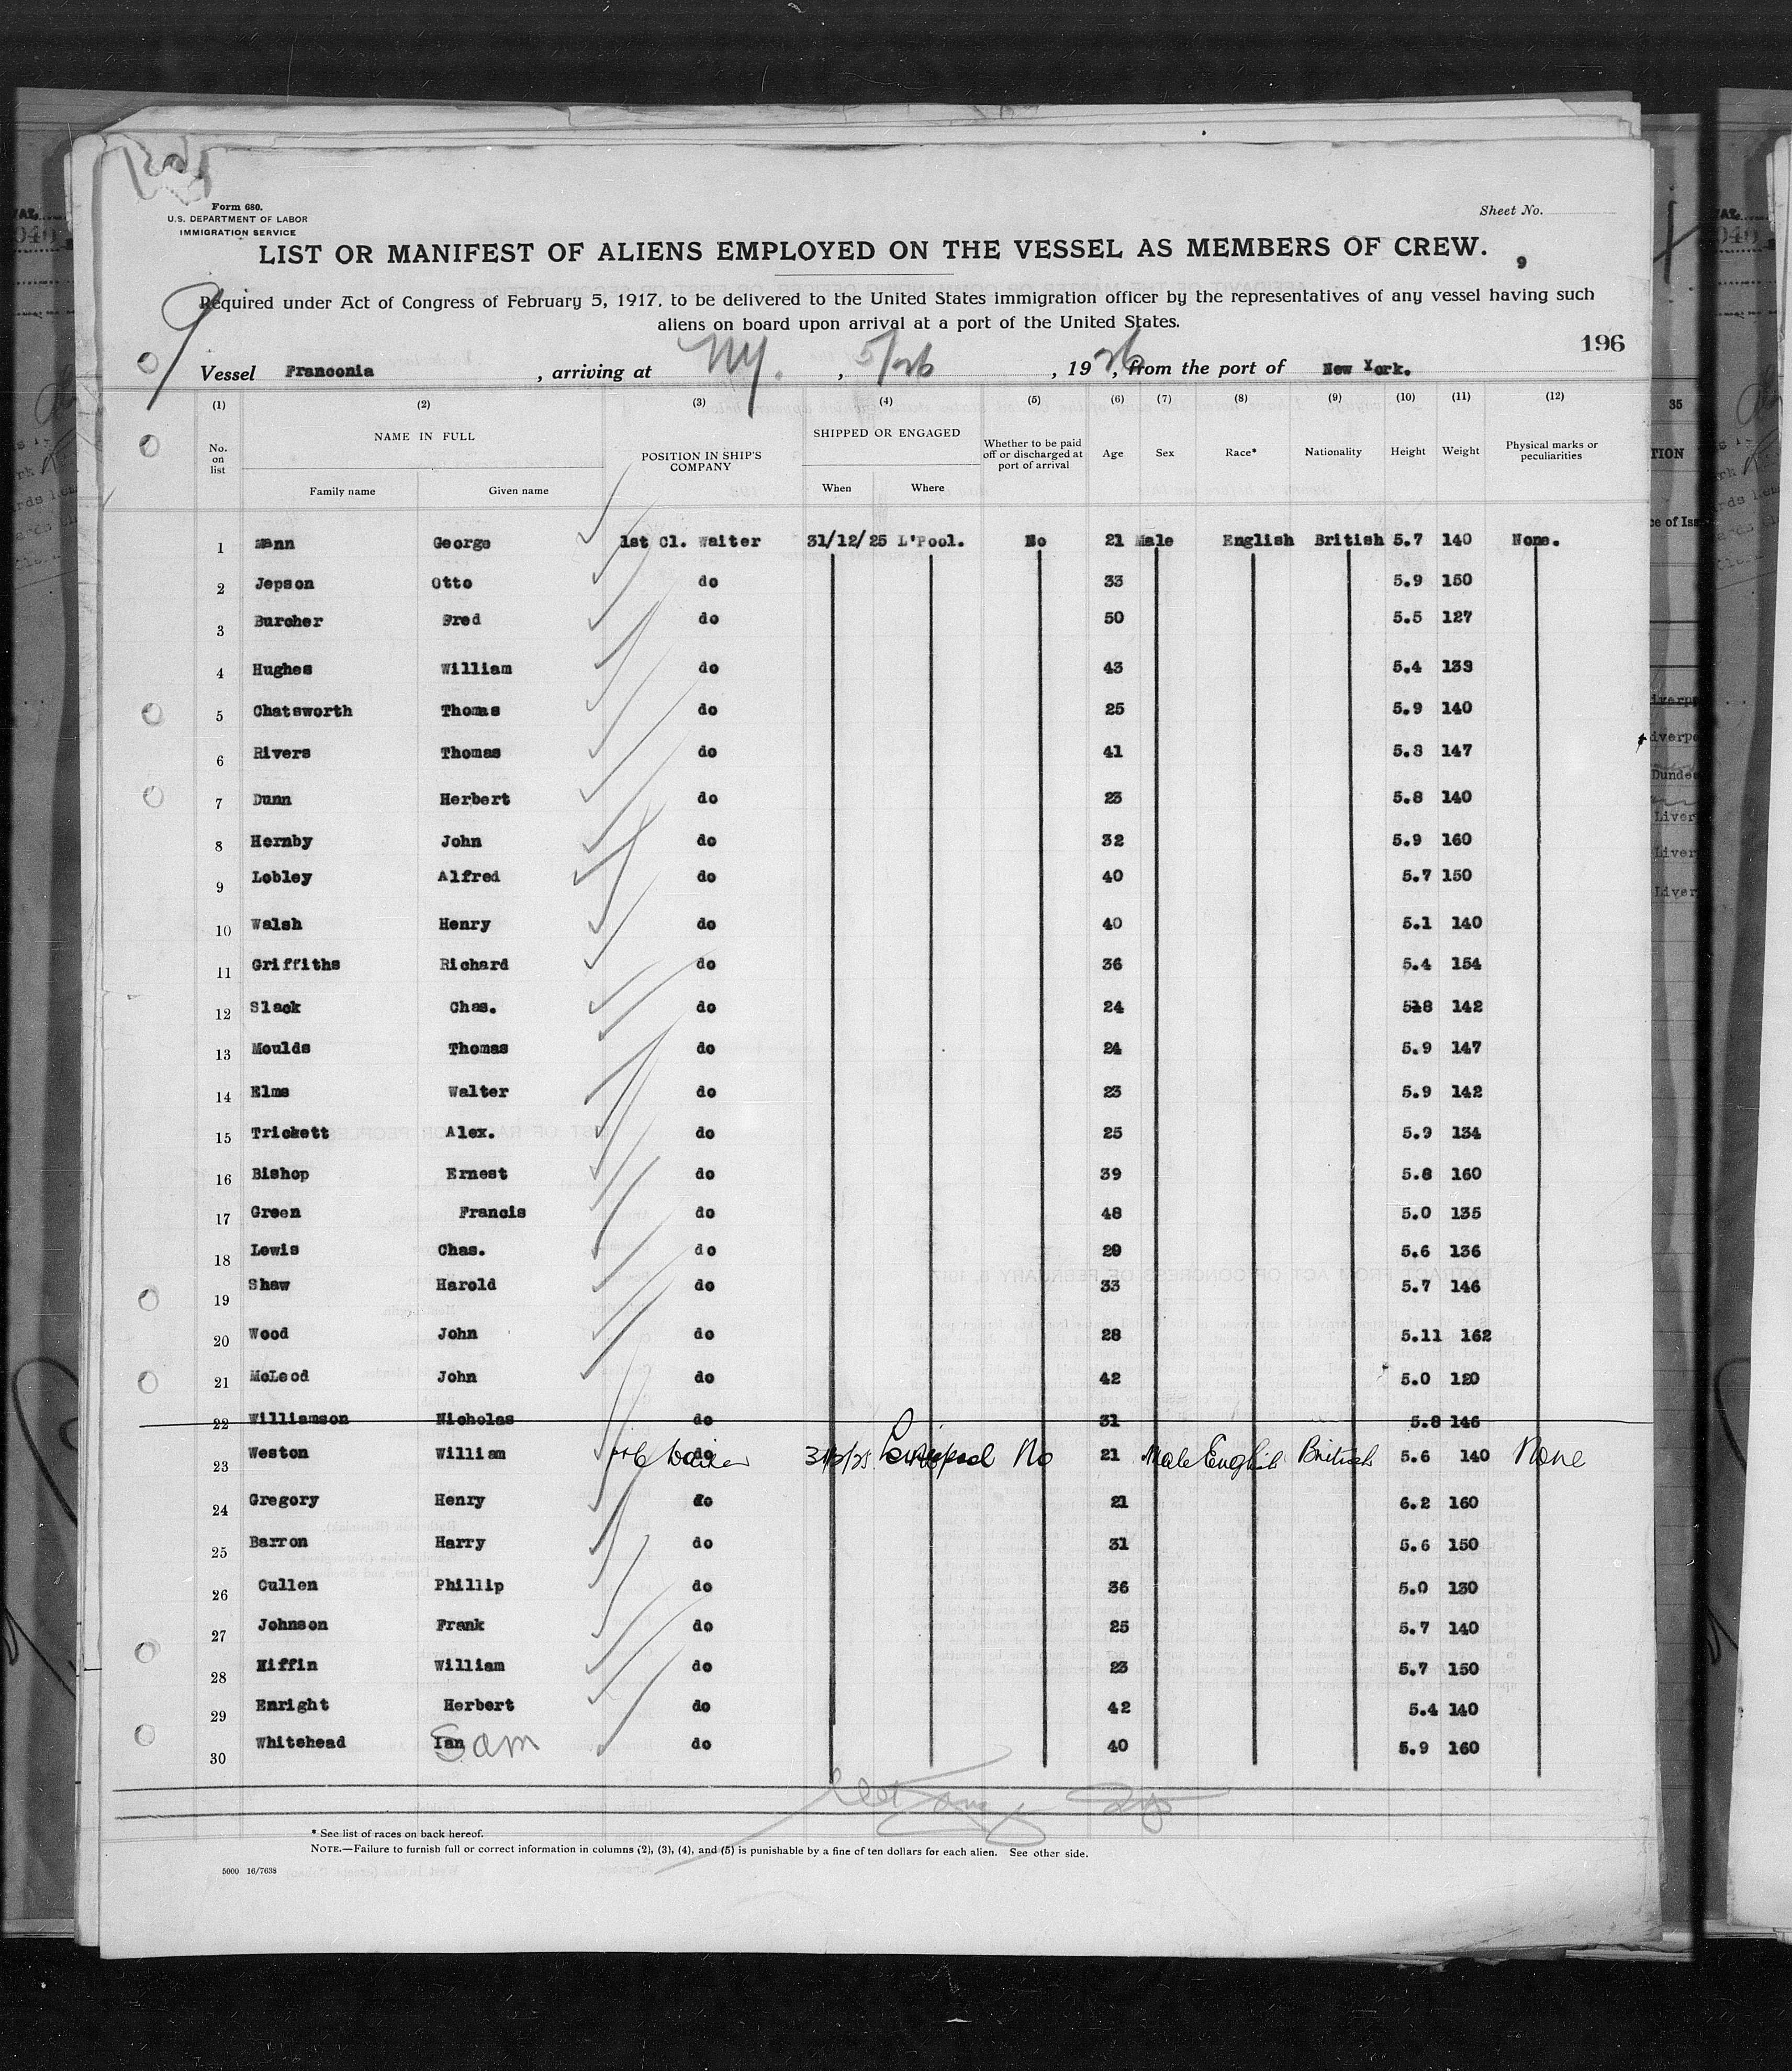 Form 680.
U.S. DEPARTMENT OF LABOR
IMMIGRATION SERVICE
Sheet No.
LIST OR MANIFEST OF ALIENS EMPLOYED ON THE VESSEL AS MEMBERS OF CREW.
9
9
Required under Act of Congress of February 5, 1917, to be delivered to the United States immigration officer by the representatives of any vessel having such
aliens on board upon arrival at a port of the United States.
196
Vessel Franconia , arriving at NY. , 5/26 , 1926, from the port of New York.
(1) (2) (3) (4) (5) (6) (7) (8) (9) (10) (11) (12)
No. on list NAME IN FULL POSITION IN SHIP'S COMPANY SHIPPED OR ENGAGED Whether to be paid off or discharged at port of arrival Age Sex Race* Nationality Height Weight Physical marks or peculiarities
Family name Given name When Where
1 Mann George 1st Cl. Waiter 31/12/25 L'Pool. No 21 Male English British 5.7 140 None.
2 Jepson Otto do 33 5.9 150
3 Burcher Fred do 50 5.5 127
4 Hughes William do 43 5.4 139
5 Chatsworth Thomas do 25 5.9 140
6 Rivers Thomas do 41 5.8 147
7 Dunn Herbert do 23 5.8 140
8 Hornby John do 32 5.9 160
9 Lobley Alfred do 40 5.7 150
10 Walsh Henry do 40 5.1 140
11 Griffiths Richard do 36 5.4 154
12 Slack Chas. do 24 518 142
13 Moulds Thomas do 24 5.9 147
14 Elms Walter do 23 5.9 142
15 Trickett Alex. do 25 5.9 134
16 Bishop Ernest do 39 5.8 160
17 Green Francis do 48 5.0 135
18 Lewis Chas. do 29 5.6 136
19 Shaw Harold do 33 5.7 146
20 Wood John do 28 5.11 162
21 McLeod John do 42 5.0 120
22 Williamson Nicholas do 31 5.8 146
23 Weston William do Waiter 31/12/25 Liverpool No 21 Male English British 5.6 140 None
24 Gregory Henry do 21 6.2 160
25 Barron Harry do 31 5.6 150
26 Cullen Phillip do 36 5.0 130
27 Johnson Frank do 25 5.7 140
28 Kiffin William do 23 5.7 150
29 Enright Herbert do 42 5.4 140
30 Whitehead Ian Sam do 40 5.9 160
* See list of races on back hereof.
NOTE.—Failure to furnish full or correct information in columns (2), (3), (4), and (5) is punishable by a fine of ten dollars for each alien. See other side.
5000 16/7638